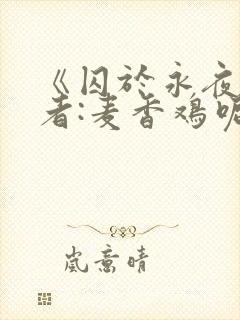 《囚於永夜
者:麦香鸡呢
岚意晴